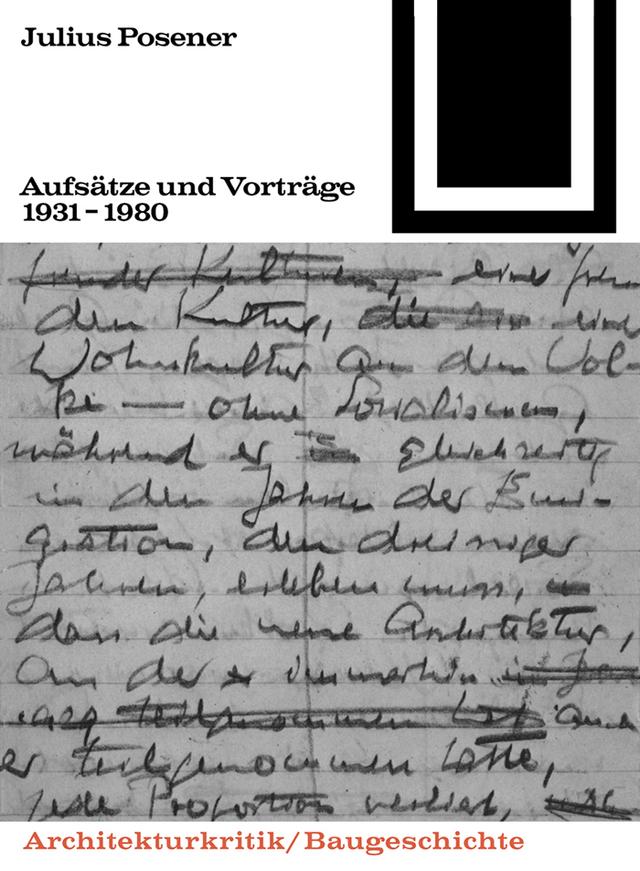 Julius Posener
Aufsätze und Vorträge
1931–1980
den Kultur, die
Wohnkultur an dem Vol-
ke — ohne Sozialismus,
während er gleichzeitig
in den Jahren der Emi-
gration, den dreissiger
Jahren, erleben muss,
dass die neue Architektur,
an der immerhin
1929 teilgenommen hat auch
er teilgenommen hatte,
jede Proportion verliert,
Architekturkritik/Baugeschichte